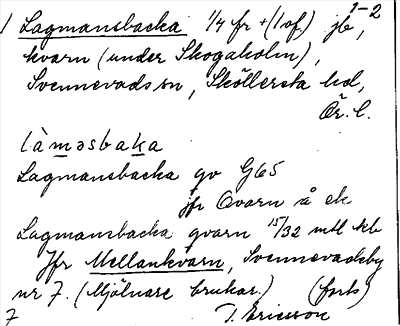 1-2
1 Lagmansbacka 1/4 fr + (1 of.) jb,
kvarn (under Skogaholm),
Svennevads sn, Sköllersta hd,
Ör. l.
làməsbaka
Lagmansbacka qv G65
jfr Qvarn å ek
Lagmansbacka qvarn 15/32 mtl
Jfr Mellankvarn, Svennevadsby
nr 7. (Mjölnare brukar.) (forts)
7 T. Ericsson